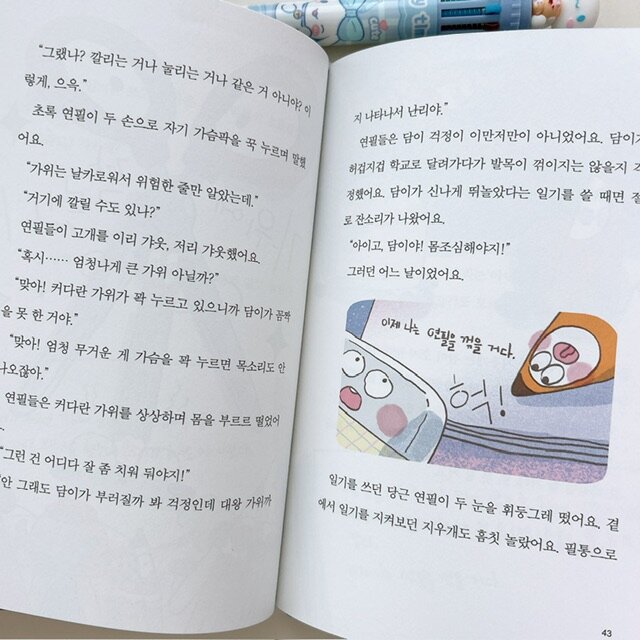 “그랬나? 깔리는 거나 눌리는 거나 같은 거 아니야? 이
렇게, 으윽.”
초록 연필이 두 손으로 자기 가슴팍을 꾹 누르며 말했
어요.
“가위는 날카로워서 위험한 줄만 알았는데.”
“거기에 깔릴 수도 있나?”
연필들이 고개를 이리 갸웃, 저리 갸웃했어요.
“혹시…… 엄청나게 큰 가위 아닐까?”
“맞아! 커다란 가위가 꽉 누르고 있으니까 담이가 꼼짝
을 못 한 거야.”
“맞아! 엄청 무거운 게 가슴을 꽉 누르면 목소리도 안
나오잖아.”
연필들은 커다란 가위를 상상하며 몸을 부르르 떨었어
“그런 건 어디다 잘 좀 치워 둬야지!”
“안 그래도 담이가 부러질까 봐 걱정인데 대왕 가위까
지 나타나서 난리야.”
연필들은 담이 걱정이 이만저만이 아니었어요. 담이가
허겁지겁 학교로 달려가다가 발목이 꺾이지는 않을지 걱
정했어요. 담이가 신나게 뛰놀았다는 일기를 쓸 때면 절
로 잔소리가 나왔어요.
“아이고, 담이야! 몸조심해야지!”
그러던 어느 날이었어요.
이제 나는 연필을 꺾을 거다.
헉!
일기를 쓰던 당근 연필이 두 눈을 휘둥그레 떴어요. 곁
에서 일기를 지켜보던 지우개도 흠칫 놀랐어요. 필통으로
43